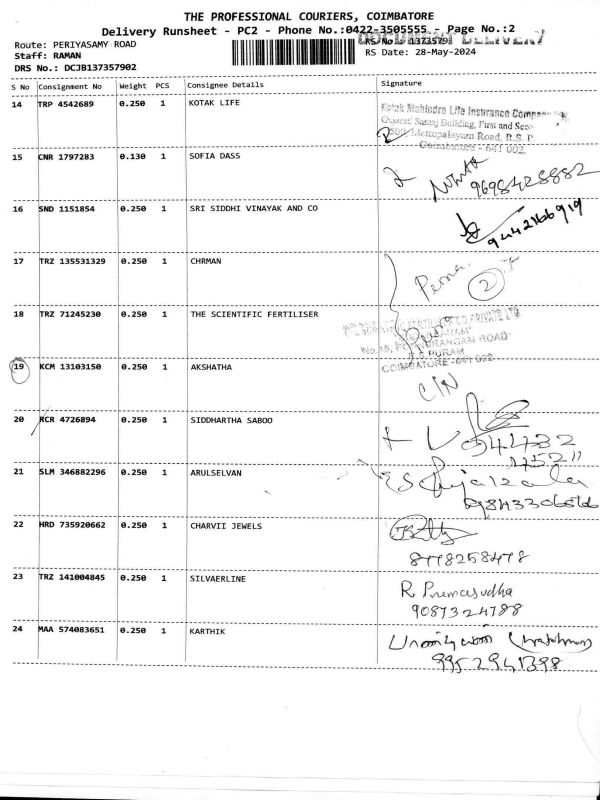 THE PROFESSIONAL COURIERS, COIMBATORE
Delivery Runsheet - PC2 - Phone No.:0422-3505555 - Page No.:2
DOCUMENT DELIVERY
Route: PERIYASAMY ROAD
RS No.: 1373579
Staff: RAMAN
RS Date: 28-May-2024
DRS No.: DCJB137357902
S No Consignment No Weight PCS Consignee Details Signature
14 TRP 4542689 0.250 1 KOTAK LIFE
Kotak Mahindra Life Insurance Company
Gujarat Samaj Building, First and
Mettupalayam Road, R.S. P
Coimbatore - 641 002.
15 CNR 1797283 0.130 1 SOFIA DASS
9698428882
16 SND 1151854 0.250 1 SRI SIDDHI VINAYAK AND CO
9442166919
17 TRZ 135531329 0.250 1 CHRMAN
2
18 TRZ 71245230 0.250 1 THE SCIENTIFIC FERTILISER
PRIVATE LTD
ROAD
R.S. PURAM
COIMBATORE - 641 002
19 KCM 13103150 0.250 1 AKSHATHA
20 KCR 4726894 0.250 1 SIDDHARTHA SABOO
21 SLM 346882296 0.250 1 ARULSELVAN
22 HRD 735920662 0.250 1 CHARVII JEWELS
8778258478
23 TRZ 141004845 0.250 1 SILVAERLINE
R. Premasudha
9087324788
24 MAA 574083651 0.250 1 KARTHIK
9952941398